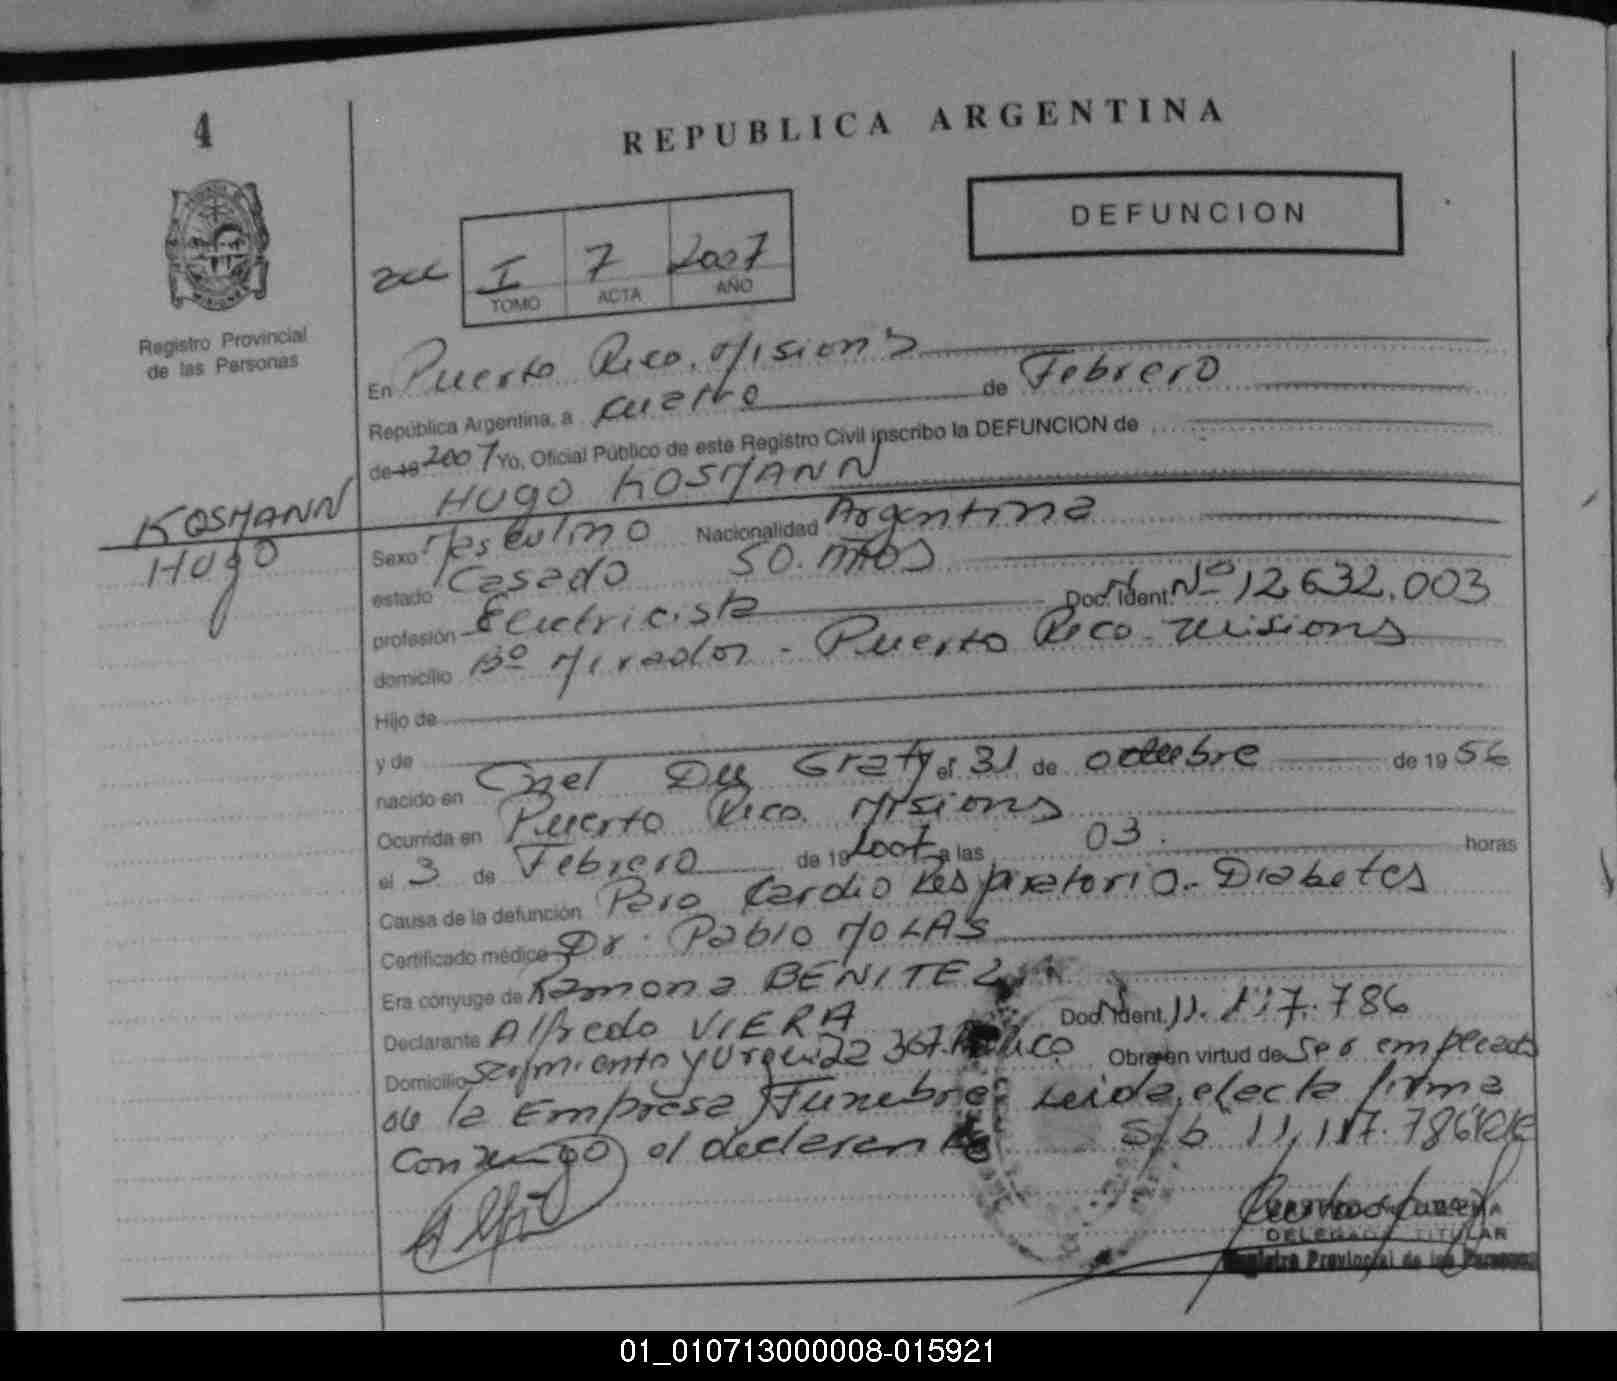 4
REPUBLICA ARGENTINA
DEFUNCION
I 7 2007
TOMO ACTA AÑO
Registro Provincial
de las Personas
En Puerto Rico, Misiones
República Argentina, a cuatro de Febrero
de 19 2007 Yo, Oficial Público de este Registro Civil inscribo la DEFUNCION de
HUGO KOSMANN
KOSMANN
HUGO
Sexo Masculino Nacionalidad Argentina
estado Casado 50. AÑOS
profesión Electricista Doc. Ident. Nº 12.632.003
domicilio Bº Mirador - Puerto Rico - Misiones
Hijo de
y de
nacido en Cnel Du Graty el 31 de octubre de 1956
Ocurrida en Puerto Rico Misiones
el 3 de Febrero de 19 2007 a las 03. horas
Causa de la defunción Paro Cardio Respiratorio - Diabetes
Certificado médico Dr. Pablo MOLAS
Era cónyuge de Ramona BENITEZ
Declarante Alfredo VIERA Doc. Ident. 11.117.786
Domicilio Sarmiento y Urquiza 367. P. Rico Obra en virtud de ser empleado
de la Empresa Funebre Leida, el acta firma
conmigo el declarante S/b 11.117.786
DELEGADO TITULAR
Registro Provincial de las Personas
01_010713000008-015921